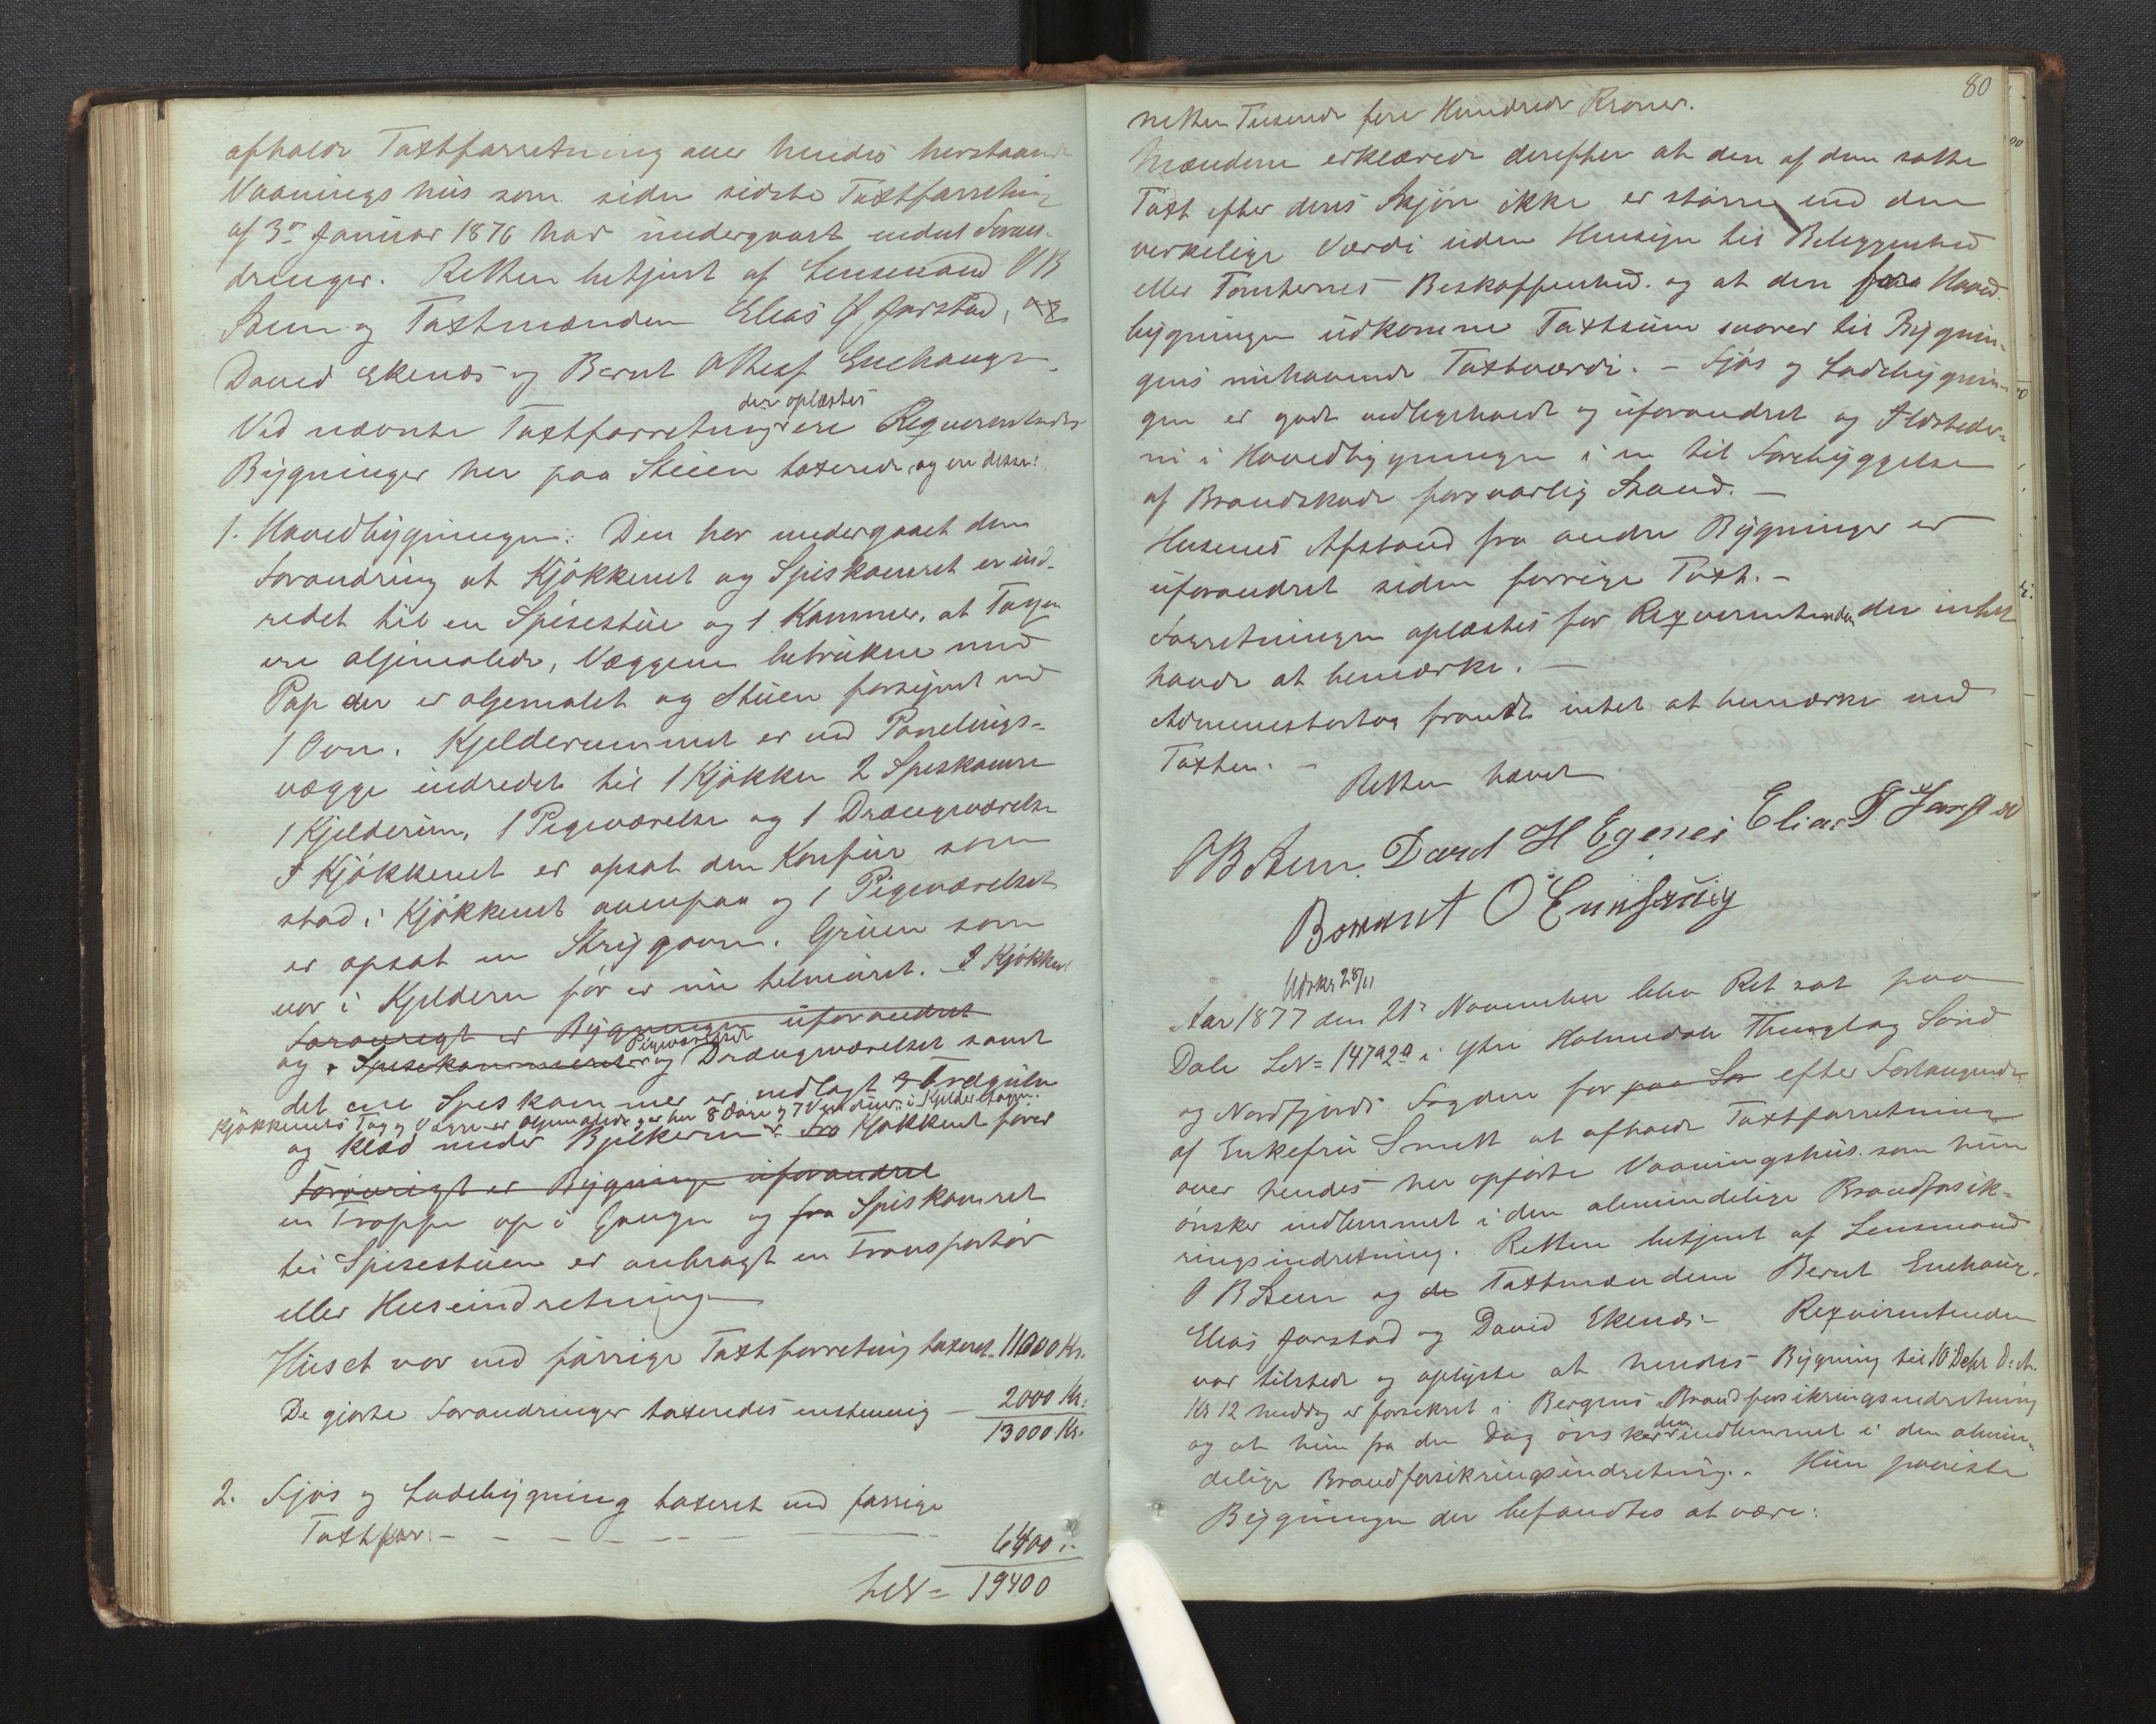 afholde Taxtforretning over hendes herstaaende
Vaaningshus som siden sidste Taxtforretning
af 3die Januar 1876 har undergaaet endel Foran-
dringer. Retten betjent af Lensmand O B
Steen og Taxtmændene Elias J Jarstad,
David Ekenæs og Bernt Enehaugs
der oplæstes
Ved nævnte Taxtforretning ere Reqverentindes
Bygninger her paa Steien taxerede og ere disse:
1. Hovedbygningen: Den har undergaaet den
Forandring at Kjøkkenet og Spiskamret er ind-
redet til en Spisestue og 1 Kammer, at Tagen
ere oljemalede, Væggene betrukne med
Pap der er oljemalet og Stuen forsynet med
1 Ovn. Kjelderummet er ved Panelings-
vægge indredet til 1 Kjøkken 2 Spiskamre
1 Kjelderum, 1 Pigeværelse og 1 Drængeværelse
I Kjøkkenet er opsat den Komfur som
stod i Kjøkkenet ovenpaa og i Pigeværelset
er opsat en Strygeovn. Gruen som
var i Kjelderen før er nu tilmuret. I Kjøkkenet
Forøvrigt er Bygningen uforandret
Pigeværelset
og Spisekammeret og Drængeværelset samt
det ene Spiskammer er nedlagt Tregulv
Kjøkkenets Tag og Vægge er oljemalede og her 8 Døre og 7 Vinduer i Kjelderetagen.
og Klæd under Bjelkerne. Fra Kjøkkenet fører
Forøvrigt er Bygningen uforandret
en Trappe op i Gangen og fra Spiskamret
til Spisestuen er anbragt en Transportør
eller Heiseindretning
Huset var ved forrige Taxtforretning taxeret 11000 Kr.
De gjorte Forandringer taxeredes enstemmig — 2000 Kr.
13000 Kr.
2. Fjøs og Ladebygning taxeret ved forrige
Taxtfor: — — — — — — — 6400 "
19400
80
nitten Tusende fire Hundrede Kroner.
Mændene erklærede derefter at den af dem satte
Taxt efter deres Skjøn ikke er større end den
verkelige Værdi uden Hensyn til Beliggenhed
eller Tomternes Beskaffenhed og at den for Hoved-
bygningen udkomne Taxtsum svarer til Bygnin-
gens nuhavende Taxtværdi. — Fjøs og Ladebygnin-
gen er godt vedligeholdt og uforandret og Ildsteder-
ne i Hovedbygningen i en til Forebyggelse
af Brandskade forsvarlig Stand. —
Husenes Afstand fra andre Bygninger er
uforandret siden forrige Taxt. —
Forretningen oplæstes for Reqverentinden der intet
havde at bemærke. —
Administrator fandt intet at bemærke med
Taxten. —
Retten hævet
O B Steen. David H Egenes Elias J Jarstad
Berent O Enehaug
Udskr 28/11
Aar 1877 den 21de November blev Ret sat paa
Dale LNo 147a2a i Ytre Holmedals Thinglag Sønd
og Nordfjords Fogderi for paa efter Forlangende
af Enkefru Smitt at afholde Taxtforretning
over hendes her opførte Vaaningshus som hun
ønsker indlemmet i den almindelige Brandforsik-
ringsindretning. Retten betjent af Lensmand
O B Steen og de Taxtmændene Bernt Enehaug.
Elias Jarstad og David Ekenæs. — Reqvirentinden
var tilstede og oplyste at hendes Bygning til 10 Debr d: A.
Kl 12 Middag er forsikret i Bergens Brandforsikringsindretning
den
og at hun fra den Dag ønsker indlemmet i den almin-
delige Brandforsikringsindretning. Hun paaviste
Bygningen der befandtes at være: